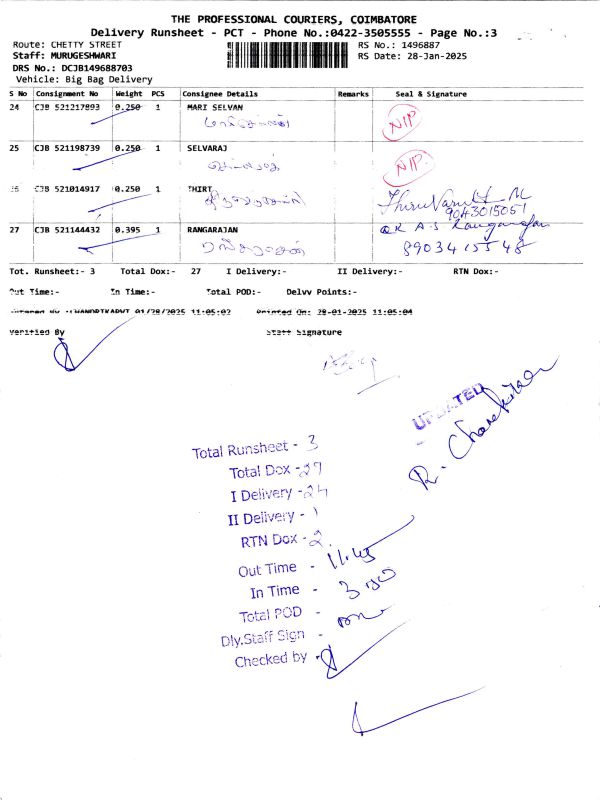 THE PROFESSIONAL COURIERS, COIMBATORE
Delivery Runsheet - PCT - Phone No.:0422-3505555 - Page No.:3
Route: CHETTY STREET RS No.: 1496887
Staff: MURUGESHWARI RS Date: 28-Jan-2025
DRS No.: DCJB149688703
Vehicle: Big Bag Delivery
S No Consignment No Weight PCS Consignee Details Remarks Seal & Signature
24 CJB 521217893 0.250 1 MARI SELVAN NIP
25 CJB 521198739 0.250 1 SELVARAJ NIP
CJB 521014917 0.250 1 THIRT
9043015051
27 CJB 521144432 0.395 1 RANGARAJAN
89034 15548
Tot. Runsheet:- 3 Total Dox:- 27 I Delivery:- II Delivery:- RTN Dox:-
Out Time:- In Time:- Total POD:- Delvv Points:-
01/28/2025 11:05:02 Printed On: 28-01-2025 11:05:04
Verified By Staff Signature
UPDATED
Total Runsheet - 3
Total Dox - 27
I Delivery - 24
II Delivery - 1
RTN Dox - 2
Out Time - 11.45
In Time - 3
Total POD -
Dly.Staff Sign -
Checked by -